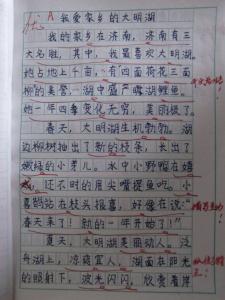 优 A 我爱家乡的大明湖
我的家乡在济南，济南有三
大名胜，其中，我最喜欢大明湖。
她占地上千亩，有四面荷花三面
柳的美誉，湖中盛产露湖鲤鱼。
她一年四季变化无穷，美丽极了。
春天，大明湖生机勃勃。湖
边柳树抽出了新的枝条，长出了
嫩绿的小芽儿。水中小野鸭在嬉
戏，还不时的用尖嘴捉鱼吃。小
喜鹊站在枝头报喜，好像在说：“
春天来了！新的一年开始了！”
夏天，大明湖美丽动人。泛
舟湖上，凉爽宜人，湖面在阳光
的照射下，波光闪闪，欣赏着岸